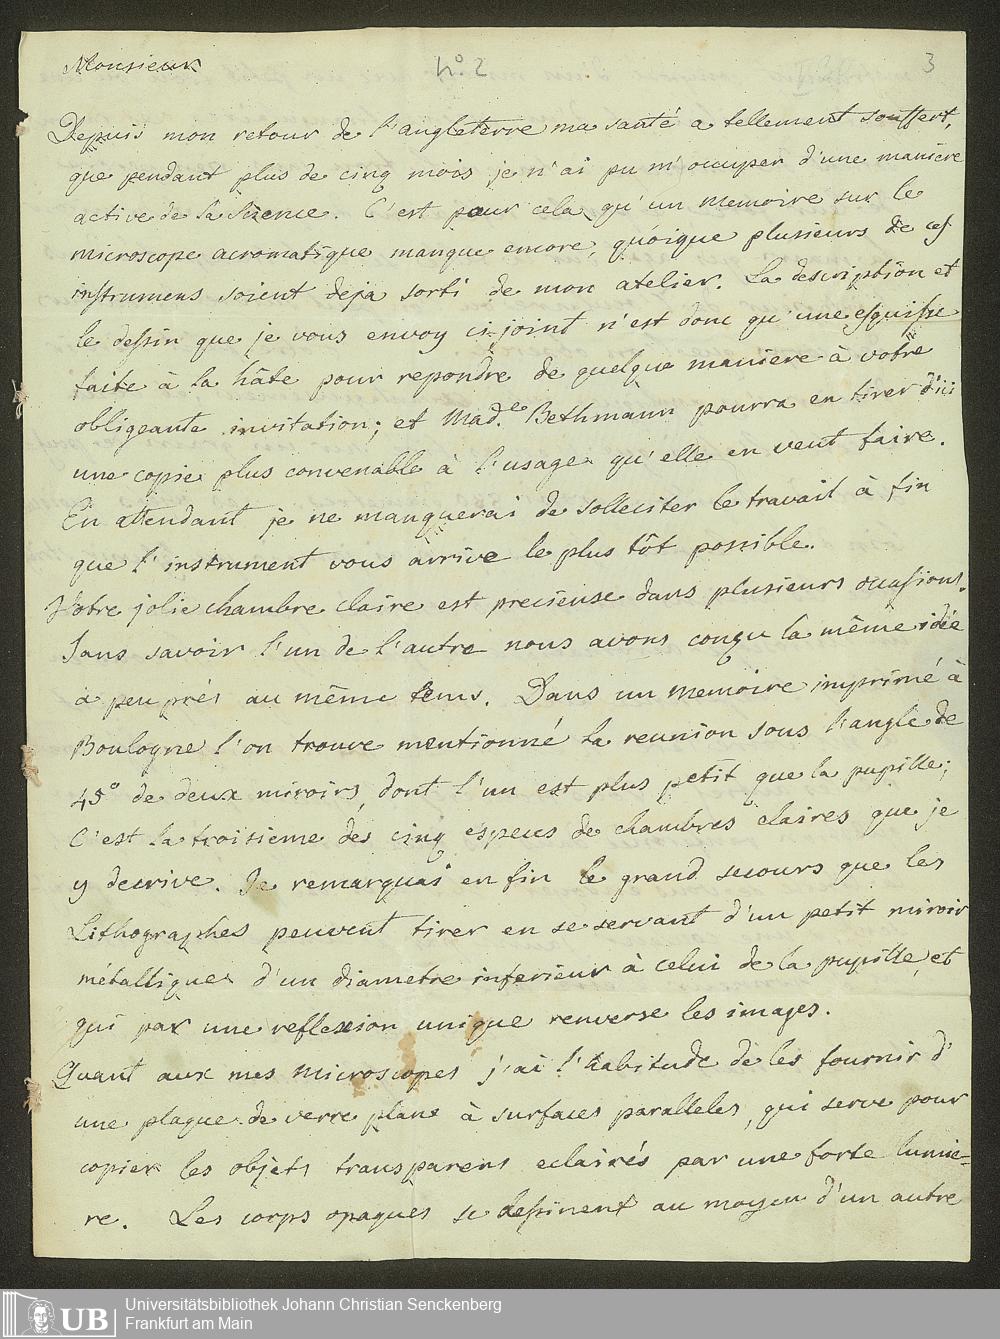 Monsieur
nº 2
3
Depuis mon retour de l'angleterre ma santé a tellement souffert,
que pendant plus de cinq mois je n'ai pu m'occuper d'une maniere
active de la Sience. C'est pour cela qu'un memoire sur le
microscope acromatique manque encore, quoique plusieurs de ces
instrumens soient deja sorti de mon atelier. La description et
le dessin que je vous envoy ci-joint n'est donc qu'une esquisse
faite à la hâte pour repondre de quelque maniere à votre
obligeante invitation; et Mad.e Bethmann pourra en tirer d'ici
une copie plus convenable à l'usage qu'elle en veut faire.
En attendant je ne manquerai de solleciter le travail à fin
que l'instrument vous arrive le plus tôt possible.
Votre jolie chambre claire est precieuse dans plusieurs occasions.
Sans savoir l'un de l'autre nous avons conçu la même idée
à peu prés au même tems. Dans un memoire imprimé à
Boulogne l'on trouve mentionné la reunion sous l'angle de
45° de deux miroirs, dont l'un est plus petit que la pupille;
C'est la troisieme des cinq especes de chambres claires que je
y decrive. Je remarquai en fin le grand secours que les
Lithographes peuvent tirer en se servant d'un petit miroir
métallique d'un diametre inferieur à celui de la pupille, et
qui par une reflexion unique renverse les images.
Quant aux mes microscopes j'ai l'habitude de les fournir d'
une plaque de verre plane à surfaces paralleles, qui serve pour
copier les objets transparens eclairés par une forte lumie=
re. Les corps opaques se dessinent au moyen d'un autre
UB
Universitätsbibliothek Johann Christian Senckenberg
Frankfurt am Main